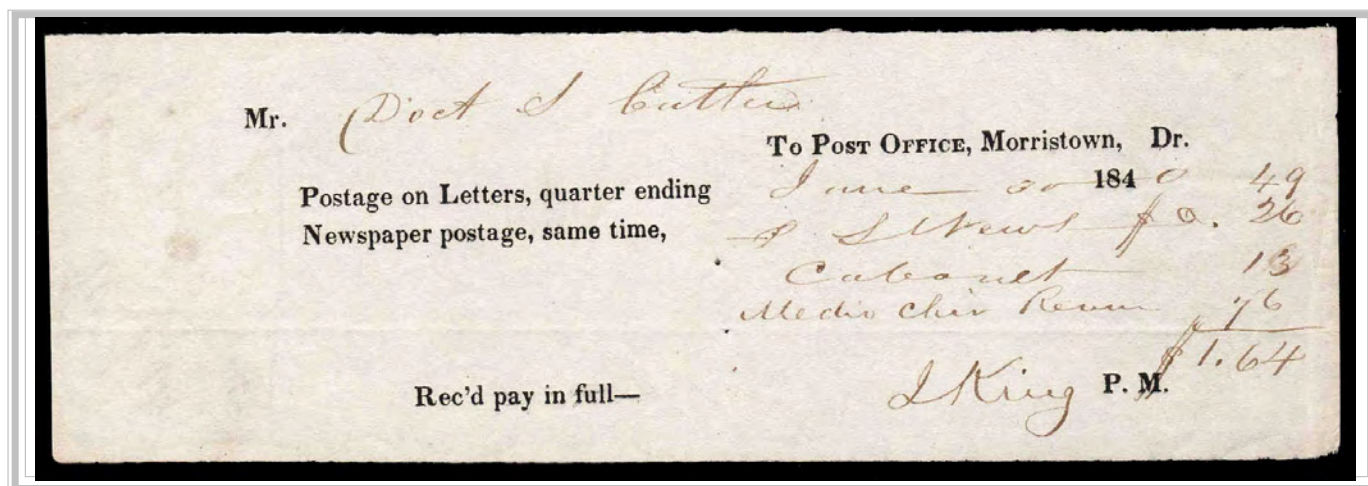 Mr. Doct S Cutler
To Post Office, Morristown, Dr.
Postage on Letters, quarter ending June 30 1840 49
Newspaper postage, same time, News 26
Cabonet 13
Medio Chir Review 76
$1.64
Rec'd pay in full— King P. M.